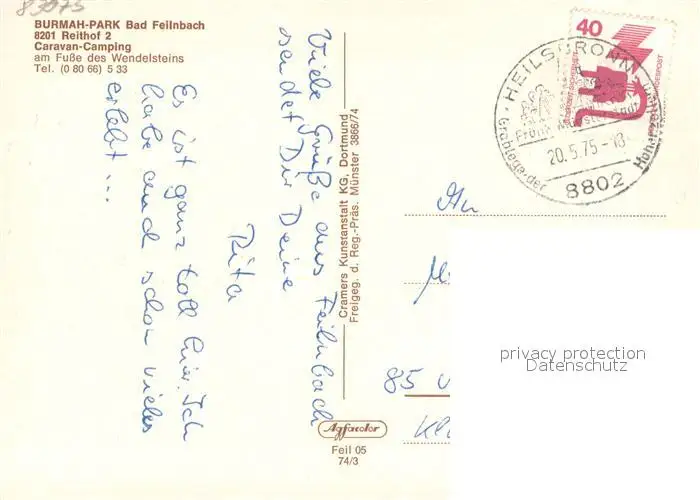 83075
BURMAH-PARK Bad Feilnbach
8201 Reithof 2
Caravan-Camping
am Fuße des Wendelsteins
Tel. (0 80 66) 5 33
Viele Grüße aus Feilnbach
sendet Dir Deine
Rita
Es ist ganz toll hier. Ich
habe auch schon vieles
erlebt...
Cramers Kunstanstalt KG, Dortmund
Freigeg. d. Reg.-Präs. Münster 3866/74
Agfacolor
Feil 05
74/3
40
HEILSBRONN
Fränk. Münsterstadt
20.5.75-18
Grablege der
Hohenzollern
8802
An
85
privacy protection
Datenschutz